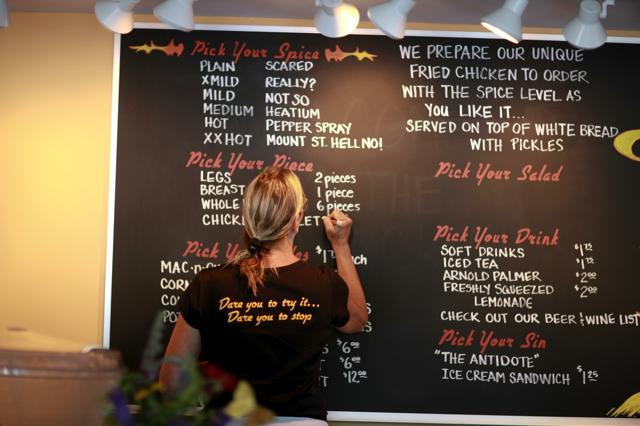 Pick Your Spice
PLAIN SCARED
XMILD REALLY?
MILD NOT SO
MEDIUM HEATIUM
HOT PEPPER SPRAY
XXHOT MOUNT ST. HELL NO!
Pick Your Piece
LEGS 2 pieces
BREAST 1 piece
WHOLE 6 pieces
Pick
MAC-n-
$6.00
$6.00
$12.00
WE PREPARE OUR UNIQUE
FRIED CHICKEN TO ORDER
WITH THE SPICE LEVEL AS
YOU LIKE IT...
SERVED ON TOP OF WHITE BREAD
WITH PICKLES
Pick Your Salad
Pick Your Drink
SOFT DRINKS $1.75
ICED TEA $1.75
ARNOLD PALMER $2.00
FRESHLY SQUEEZED $2.00
LEMONADE
CHECK OUT OUR BEER & WINE LIST
Pick Your Sin
"THE ANTIDOTE"
ICE CREAM SANDWICH $1.25
Dare you to try it...
Dare you to stop